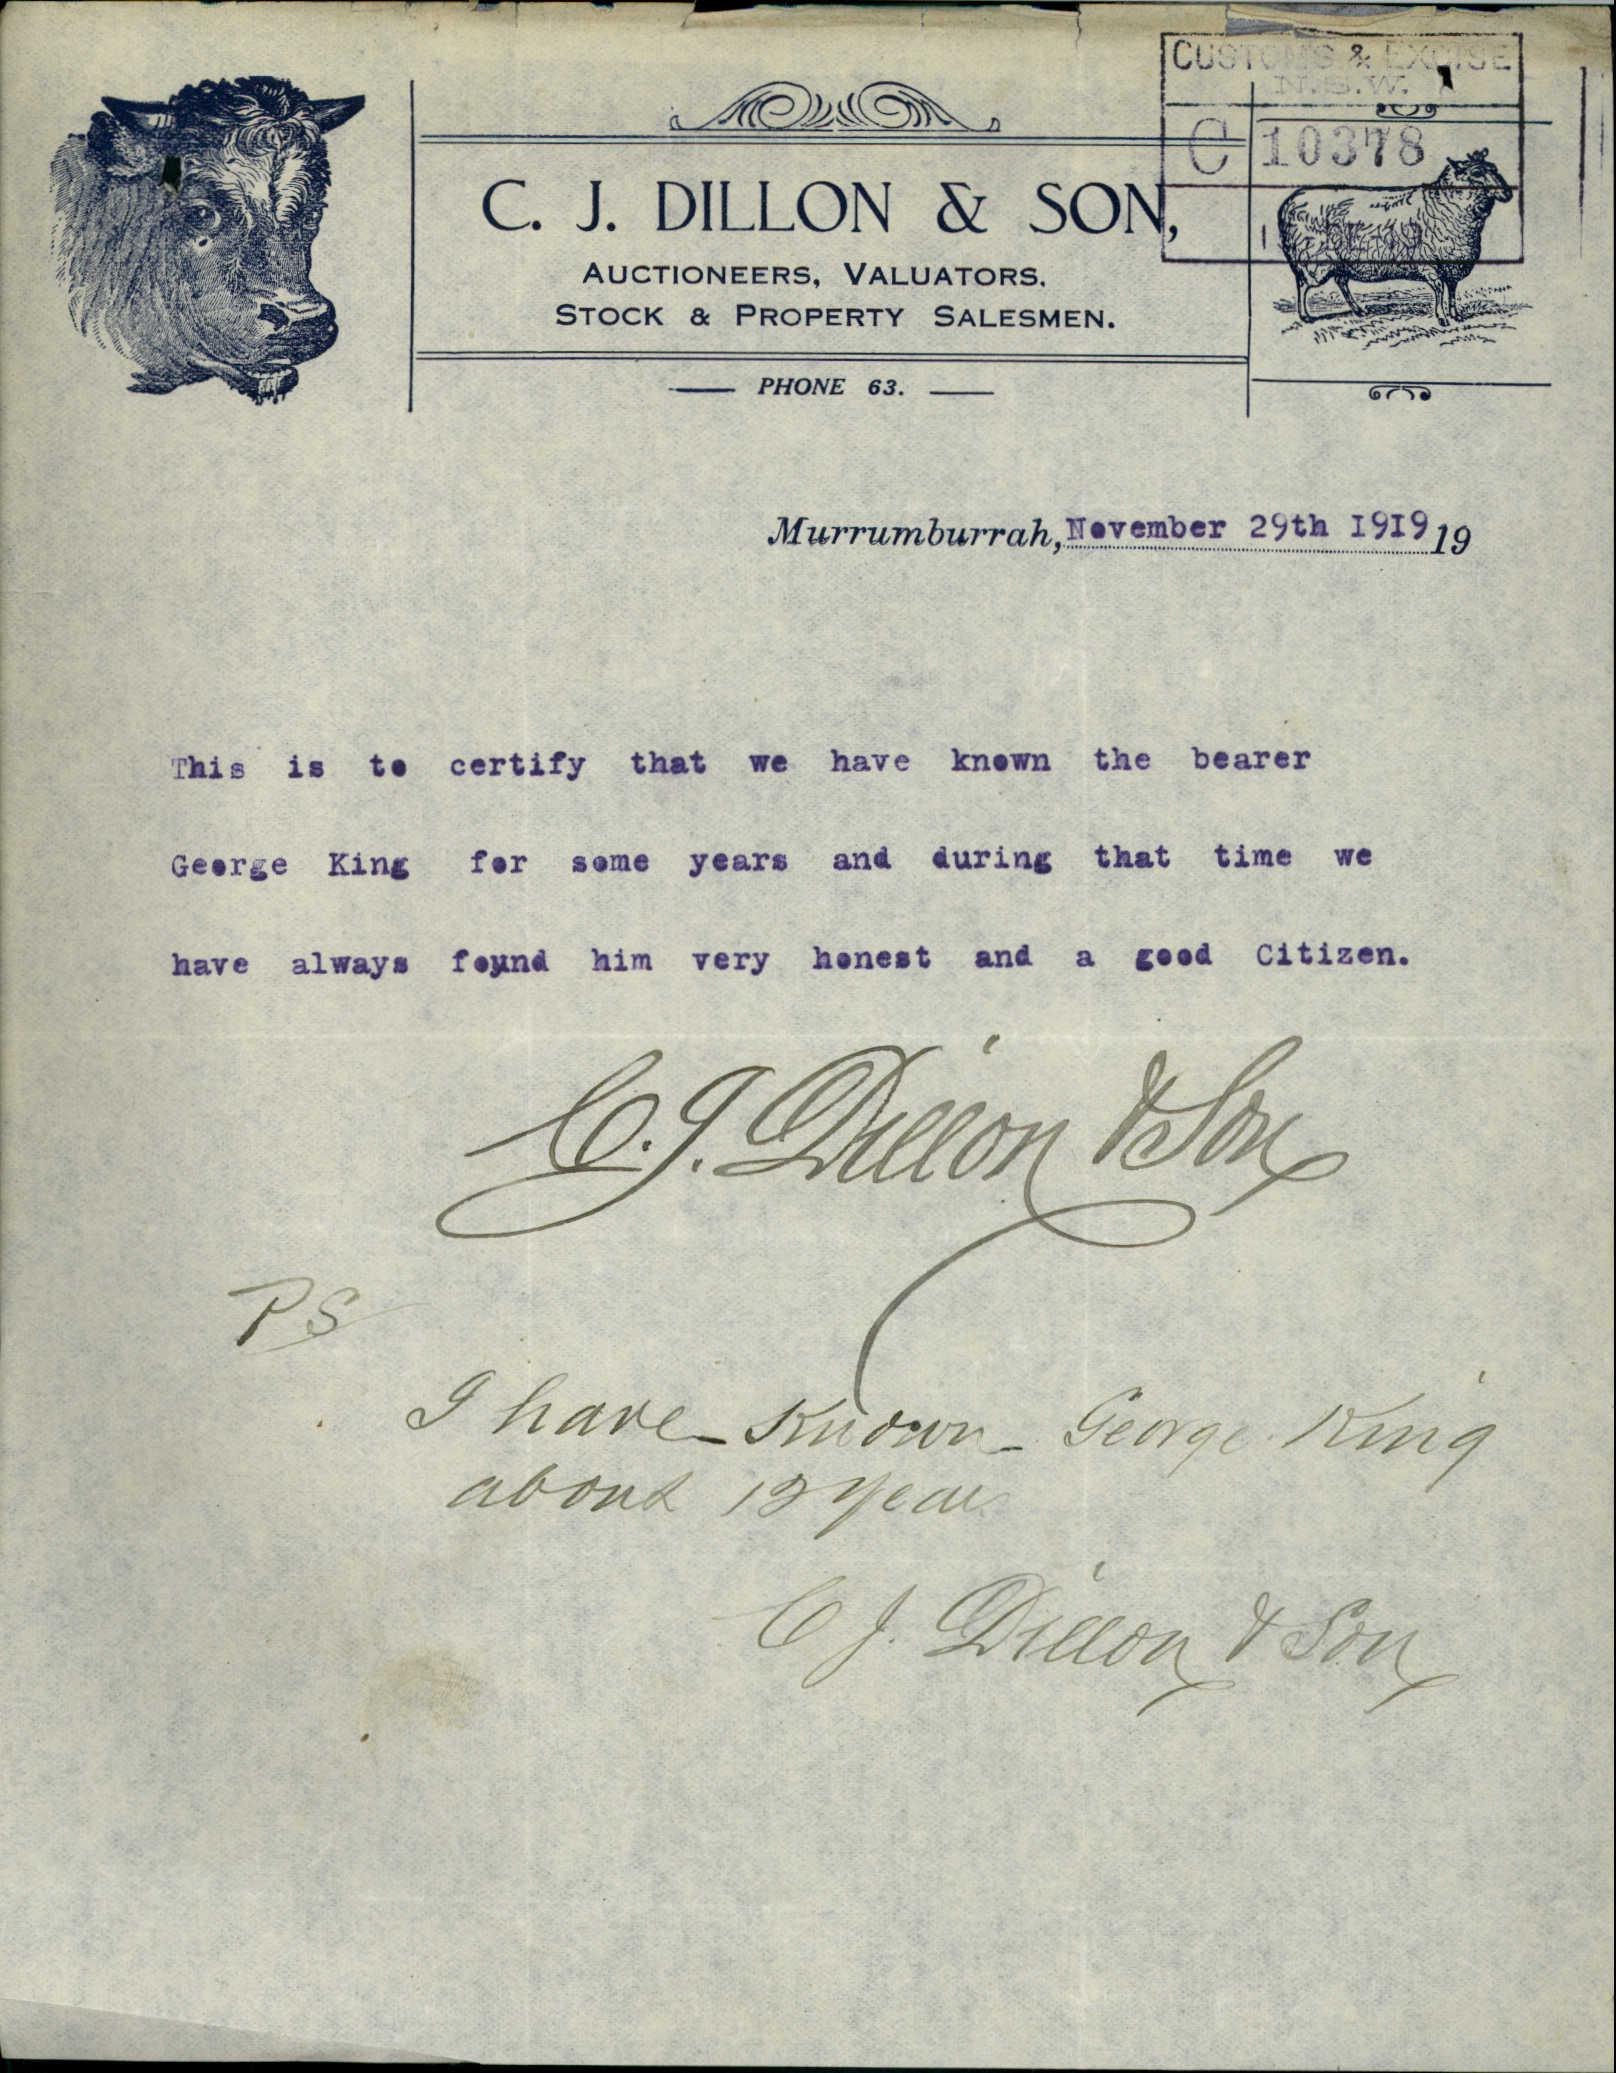 CUSTOMS & EXCISE
N.S.W.
C 10378
C. J. DILLON & SON,
AUCTIONEERS, VALUATORS.
STOCK & PROPERTY SALESMEN.
PHONE 63.
Murrumburrah, November 29th 1919 19
This is to certify that we have known the bearer
George King for some years and during that time we
have always found him very honest and a good Citizen.
C. J. Dillon & Son
PS
I have Known George King
about 12 years
C J. Dillon & Son